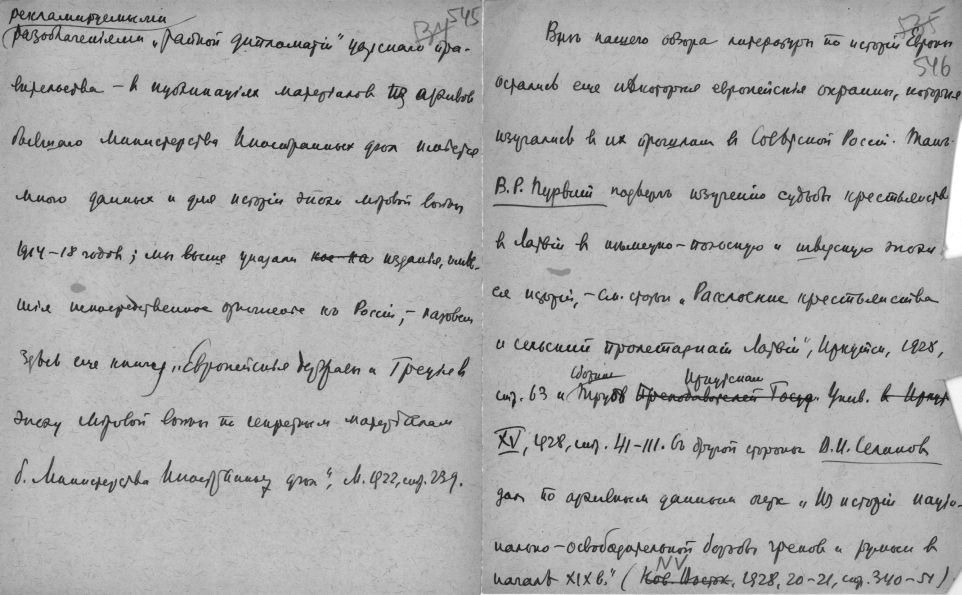 545
рекламируемыми
разоблачениями „тайной дипломатіи" царскаго пра-
вительства – въ публикаціях матеріалов из архивов
бывшаго Министерства Иностранных дѣл имѣется
много данных и для исторіи эпохи міровой войны
1914–18 годов; мы выше указали кое-ка изданія, имѣв-
шія непосредственное отношеніе къ Россіи, – назовем
здѣсь еще книгу „Европейскія державы и Греція в
эпоху міровой войны по секретным матеріалам
б. Министерства Иностранных дѣл", М. 1922, стр. 239.
535
546
Внѣ нашего обзора литературы по исторіи Европы
остались еще нѣкоторыя европейскія окраины, которыя
изучались в их прошлом в Совѣтской Россіи. Такъ
В.Р. подверг изученію судьбы крестьянства
в Латвіи в нѣмецко-польскую и шведскую эпохи
ея исторіи, – см. статьи „Расслоение крестьянства
и сельский пролетариат Латвіи", Иркутск, 1928,
стр. 63 и Сборник Трудов Преподавателей Госуд. Иркутскаго Унив. в Иркут
XV, 1928, стр. 41–111. Съ другой стороны Д.И.
дал по архивным данным очерк „Из исторіи націо-
нально-освободительной борьбы греков и румын в
началѣ XIX в." (Нов. Восток, NV 1928, 20–21, стр. 340–51)